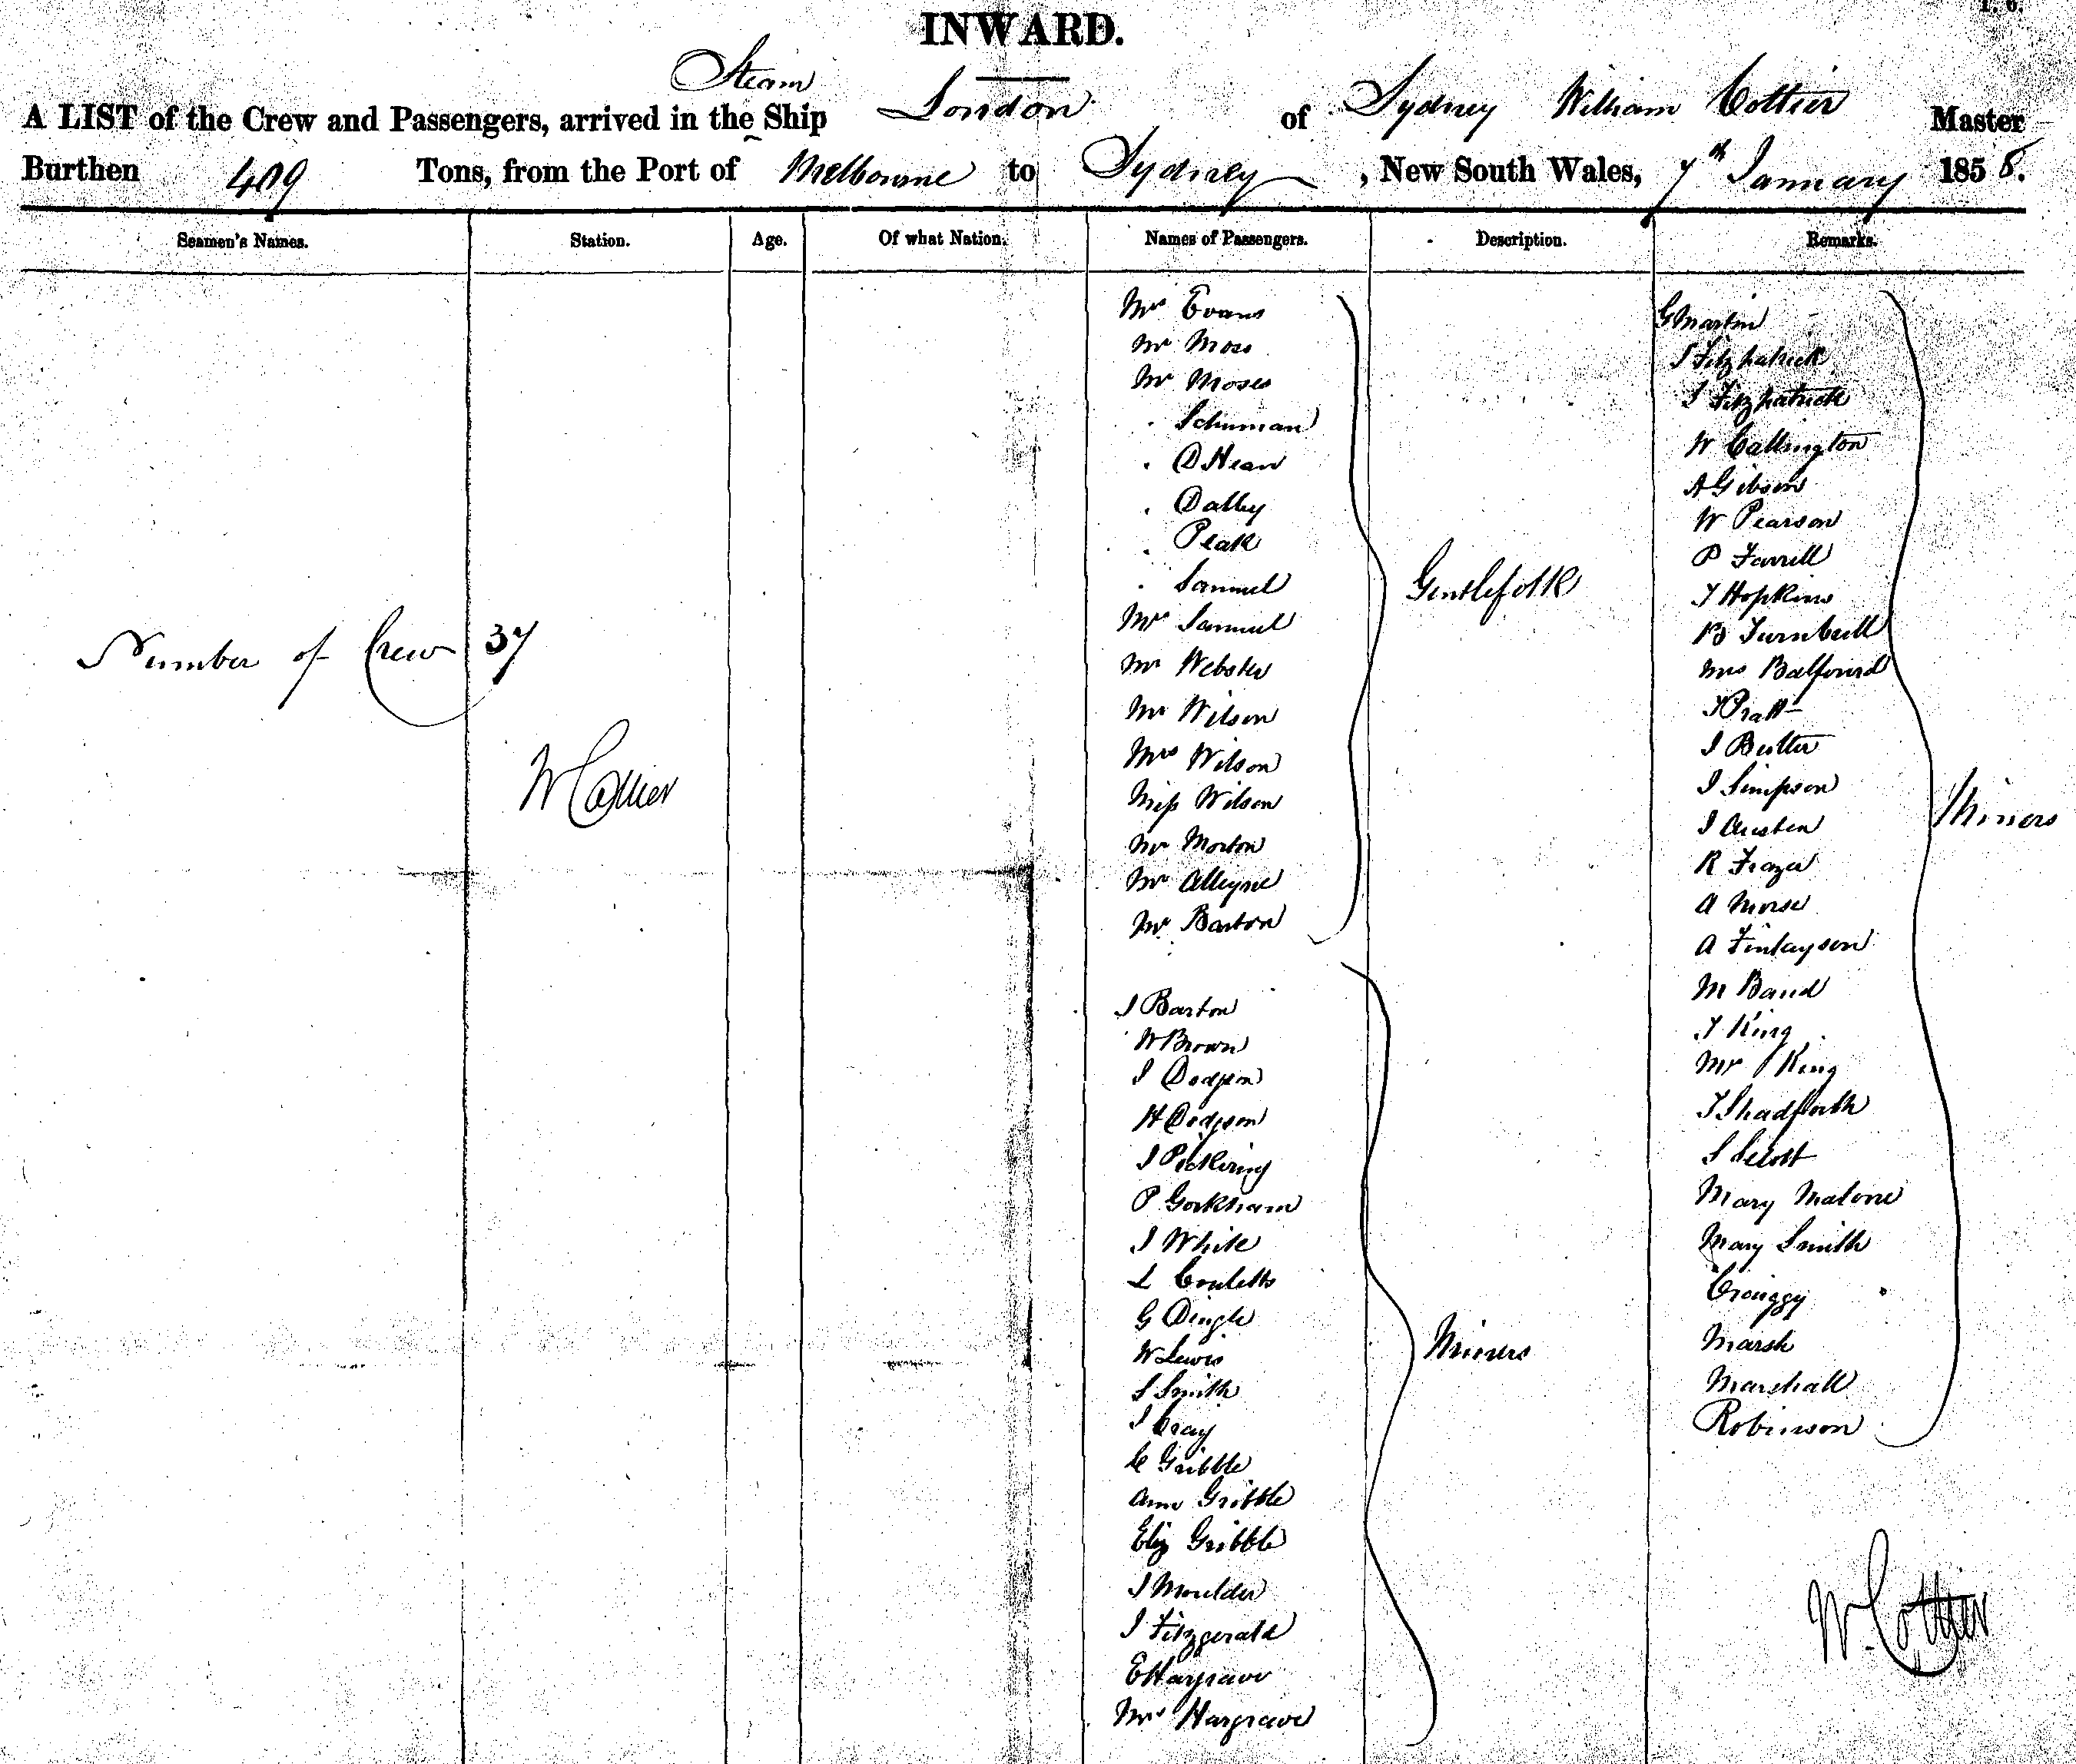 INWARD.
A LIST of the Crew and Passengers, arrived in the Steam Ship London of Sydney William Cottier Master
Burthen 409 Tons, from the Port of Melbourne to Sydney, New South Wales, 7th January 1858.
Seamen's Names. Station. Age. Of what Nation. Names of Passengers. Description. Remarks.
Number of Crew 37
W Cottier
Mr Evans
Mr Moss
Mr Moses
" Schuman
" O Hean
" Dalley
" Peak
" Samuel
Mr Samuel
Mr Webster
Mr Wilson
Mrs Wilson
Miss Wilson
Mr Morton
Mr Alleyne
Mr Barton
Gentlefolk
J Barton
W Brown
J Dodgson
H Dodgson
J Pickering
P Gorkham
J White
L
G Dingle
W Lewis
S Smith
J Gray
C Gribble
Ann Gribble
Eliz Gribble
J Moulder
J Fitzgerald
E Hargrave
Mrs Hargrave
Miners
G Martin
J Fitzpatrick
J Fitzpatrick
W Callington
A Gibson
W Pearson
P Farrell
T Hopkins
B Turnbull
Mrs Balfourd
T Pratt
J Butler
J Simpson
J Austen
R Frazer
A Morse
A Finlayson
M Band
T King
Mr King
T Shadforth
S Scott
Mary Malone
Mary Smith
Marsh
Marshall
Robinson
Miners
W. Cottier